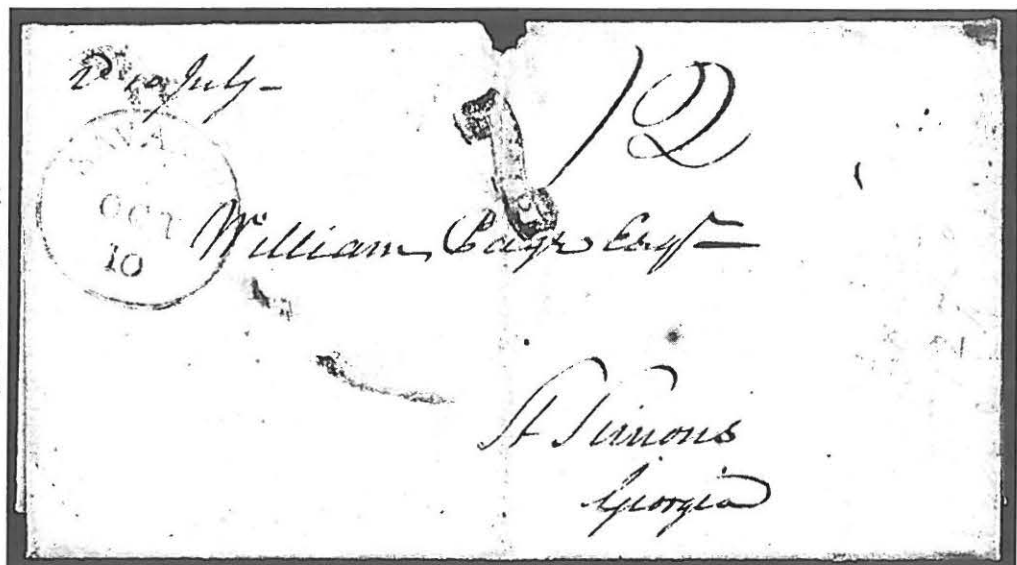 10 July
12
SAVA
OCT
10
William Page Esqr
St Simons
Georgia